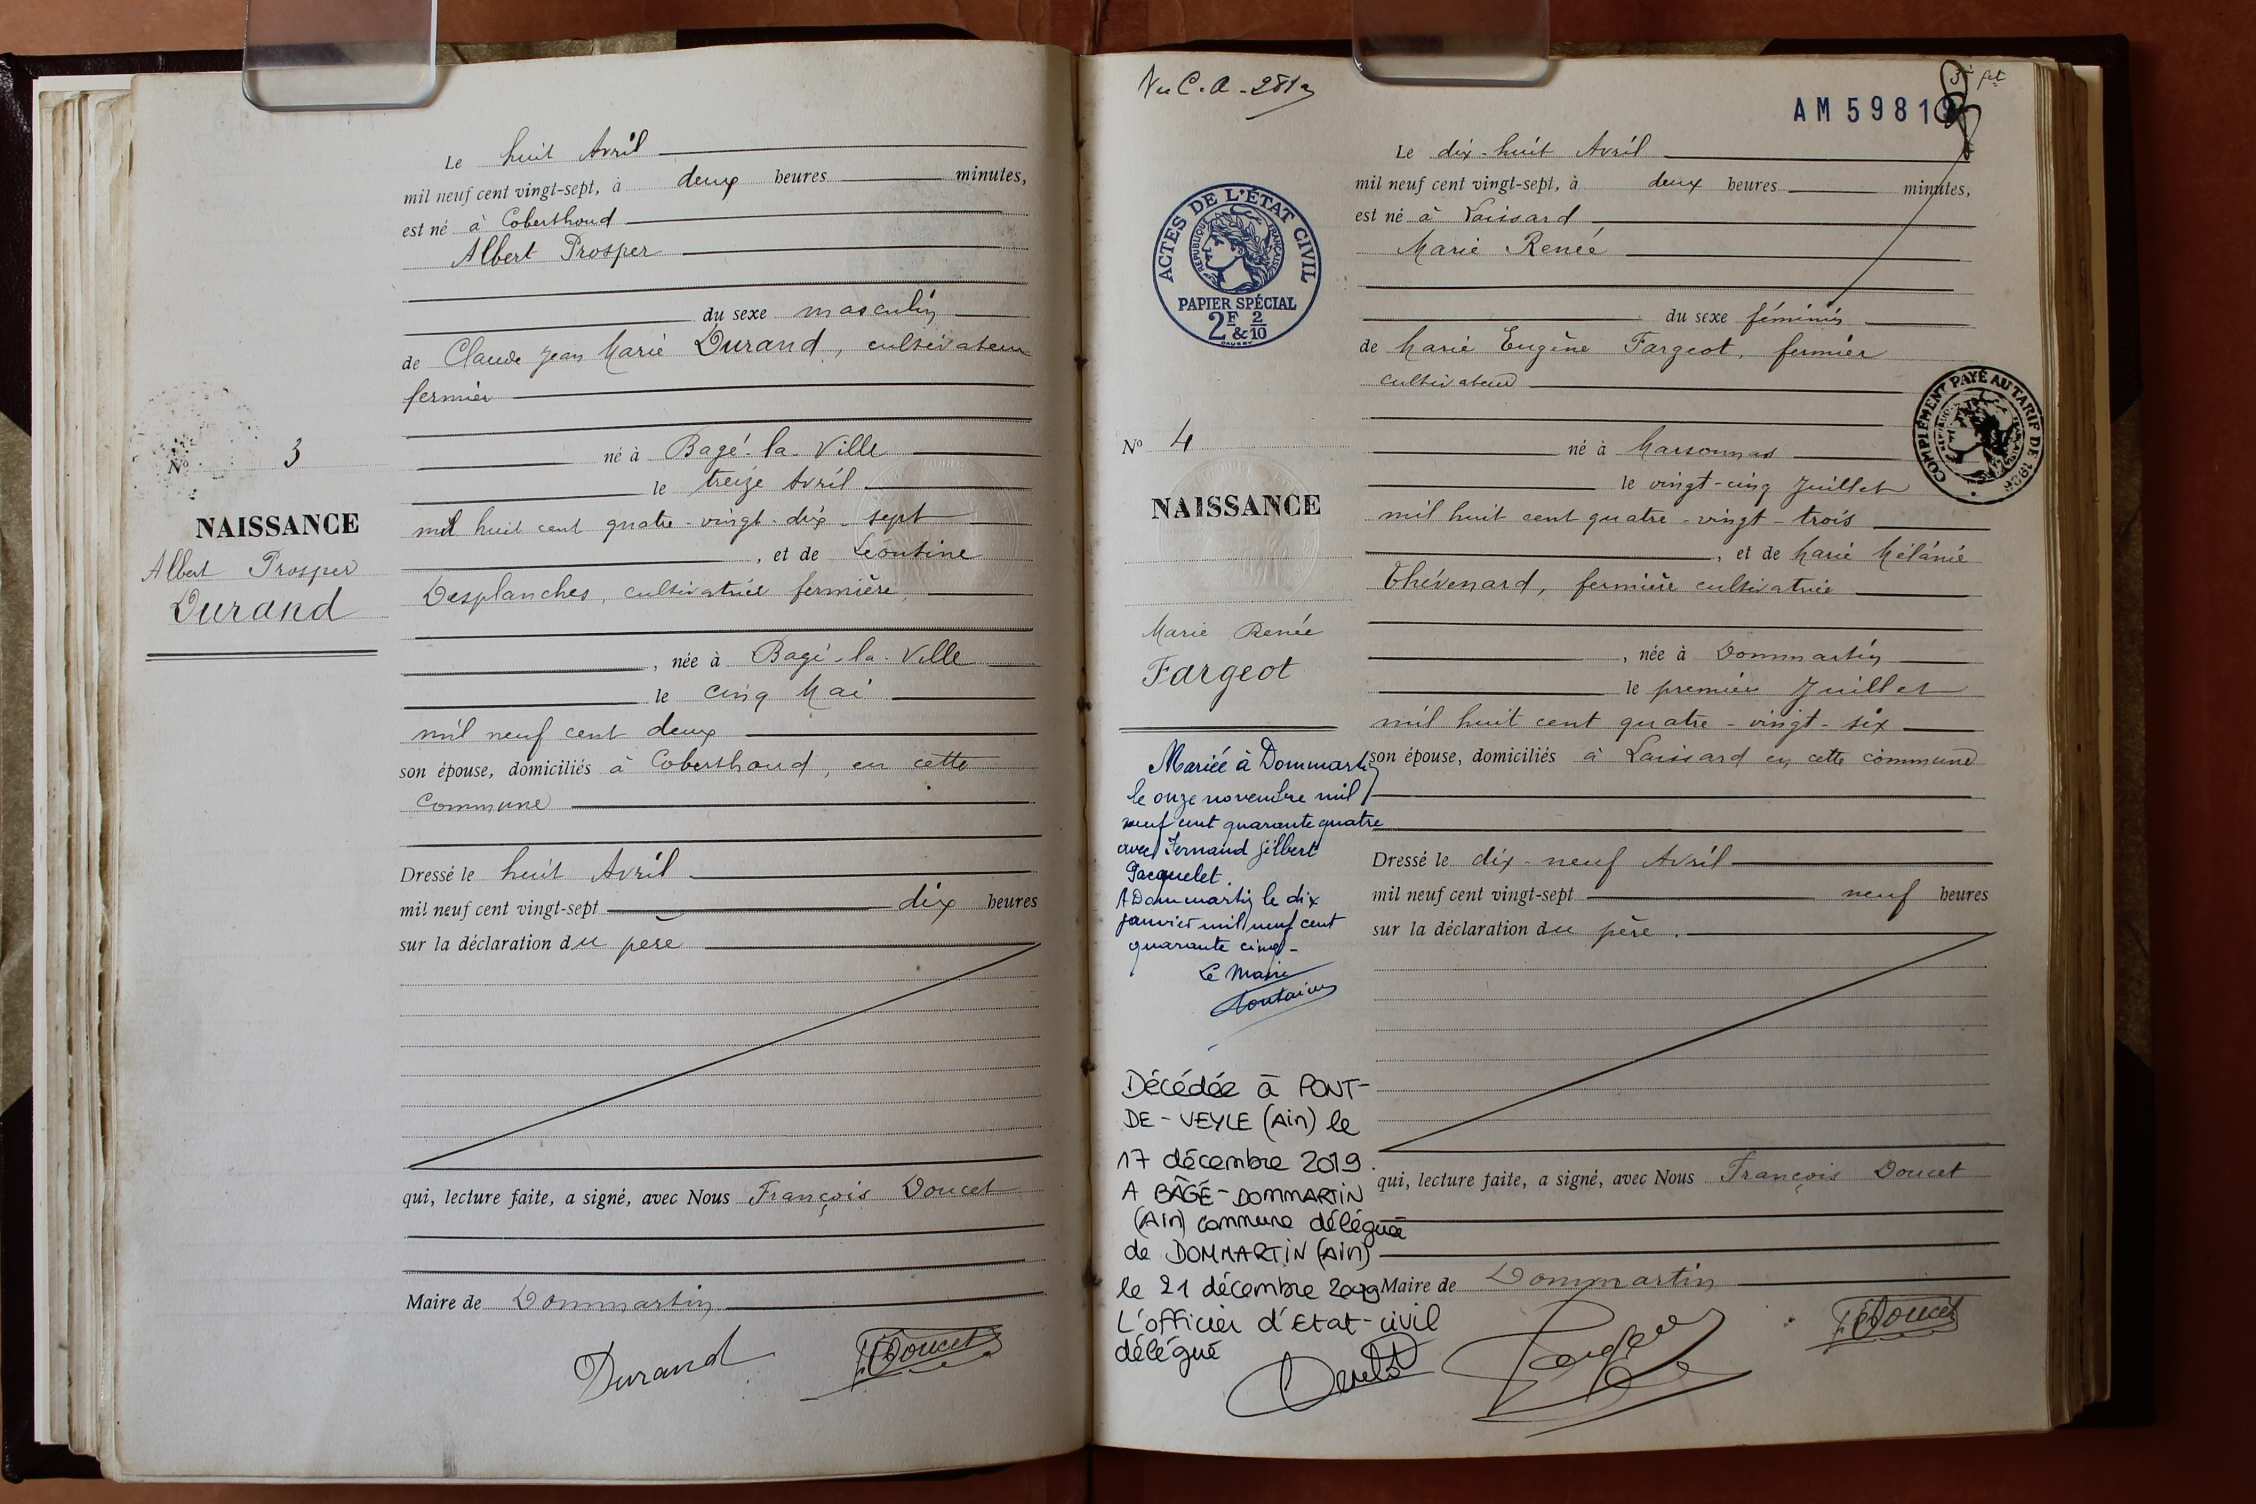 Le huit Avril
mil neuf cent vingt-sept, à deux heures minutes,
est né à Coberthoud
Albert Prosper
du sexe masculin
de Claude Jean Marie Durand, cultivateur
fermier
né à Bagé-la-Ville
le treize Avril
mil huit cent quatre-vingt-dix-sept
, et de Léontine
Desplanches, cultivatrice fermière,
, née à Bagé-la-Ville
le cinq Mai
mil neuf cent deux
son épouse, domiciliés à Coberthoud, en cette
commune
Dressé le huit Avril
mil neuf cent vingt-sept dix heures
sur la déclaration du père
qui, lecture faite, a signé, avec Nous François Doucet
Maire de Dommartin
Durand
F. Doucet
No 3
NAISSANCE
Albert Prosper
Durand
AM 5981
ACTES DE L'ÉTAT CIVIL
RÉPUBLIQUE FRANÇAISE
PAPIER SPÉCIAL
2F & 2/10
COMPLÉMENT PAYÉ AU TARIF DE 1926
No 4
NAISSANCE
Marie Renée
Fargeot
Mariée à Dommartin
le onze novembre mil
neuf cent quarante quatre
avec Fernand Gilbert
Pacquelet.
A Dommartin le dix
janvier mil neuf cent
quarante cinq -
Le Maire
Décédée à PONT-
DE-VEYLE (Ain) le
17 décembre 2019.
A BÂGÉ-DOMMARTIN
(Ain) commune déléguée
de DOMMARTIN (Ain)
le 21 décembre 2019
L'officier d'Etat-civil
délégué
Le dix-huit Avril
mil neuf cent vingt-sept, à deux heures minutes,
est né à Laissard
Marie Renée
du sexe féminin
de Marie Eugène Fargeot, fermier
cultivateur
né à Marsonnas
le vingt-cinq Juillet
mil huit cent quatre-vingt-trois
, et de Marie Mélanie
Thévenard, fermière cultivatrice
, née à Dommartin
le premier Juillet
mil huit cent quatre-vingt-six
son épouse, domiciliés à Laissard en cette commune
Dressé le dix-neuf Avril
mil neuf cent vingt-sept neuf heures
sur la déclaration du père.
qui, lecture faite, a signé, avec Nous François Doucet
Maire de Dommartin
F. Doucet